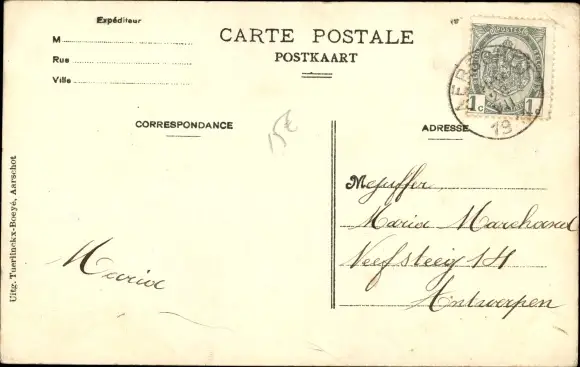 Expéditeur
M
Rue
Ville
CARTE POSTALE
POSTKAART
POSTES
1c 1c
19
CORRESPONDANCE
15€
ADRESSE
Mejuffer,
Maria Marchand
Maria
Antwerpen
Uitg. Tuerlinckx-Boeyé, Aarschot